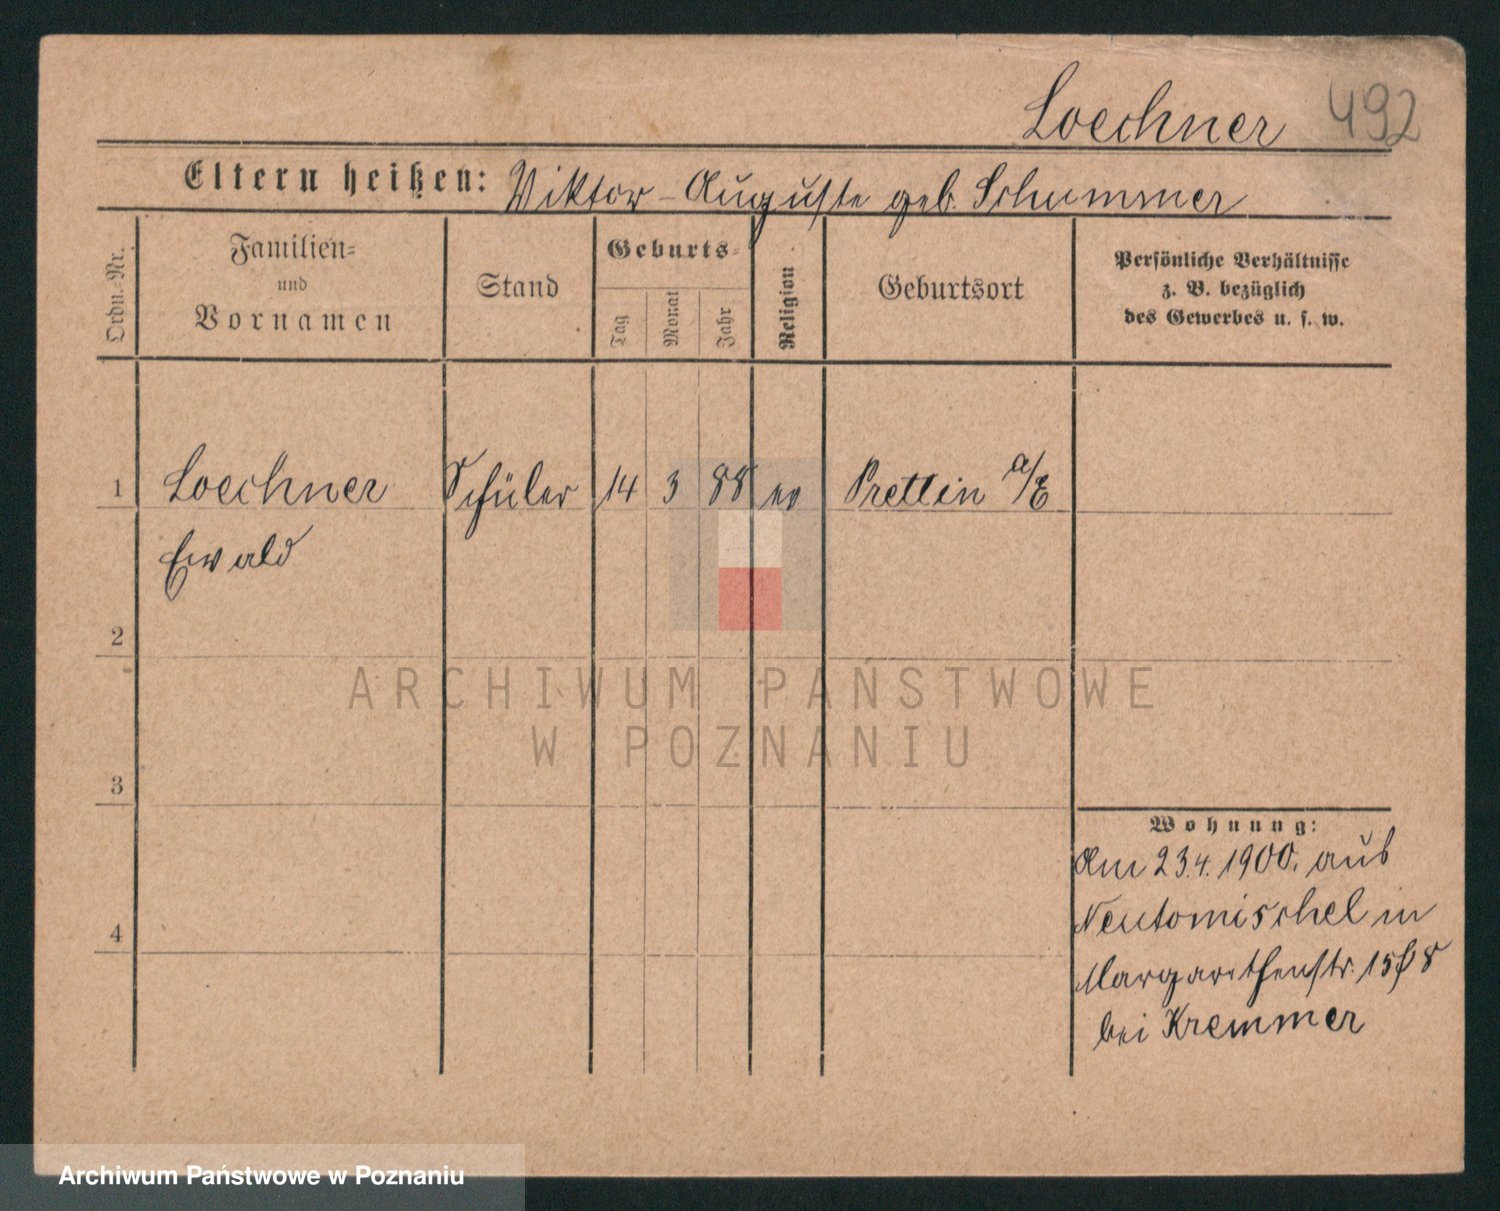 Loechner 492
Eltern heißen: Viktor - Auguste geb. Schummer
Ordn.-Nr.
Familien-
und
Vornamen
Stand
Geburts-
Tag
Monat
Jahr
Religion
Geburtsort
Persönliche Verhältnisse
z. B. bezüglich
des Gewerbes u. s. w.
1 Loechner Schüler 14 3 88 ev Prettin a/E
Ewald
2
ARCHIWUM PAŃSTWOWE
W POZNANIU
3
Wohnung:
Am 23.4.1900. aus
Neutomischel in
4
Margarethenstr. 15
bei Kremmer
Archiwum Państwowe w Poznaniu